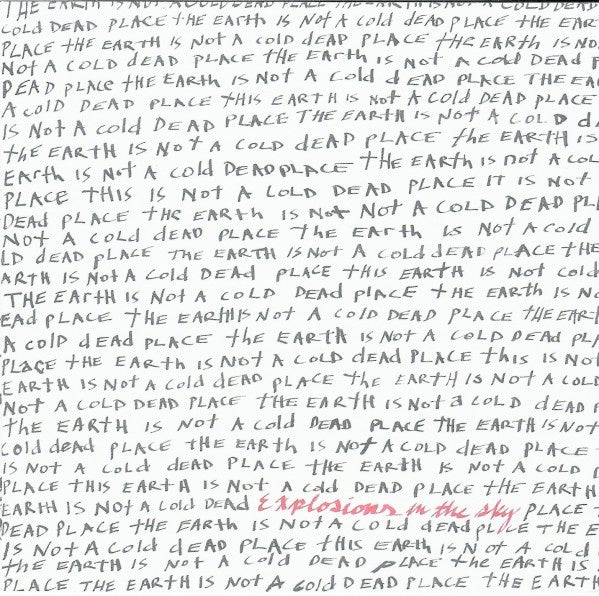 THE EARTH IS NOT A COLD DEAD PLACE THE EARTH IS NOT A COLD DEAD
COLD DEAD PLACE tHE EARTH IS NOT A COLD DEAD PLACE THE EAR
PLACE tHE EARTH IS NOT A COLD dEAD PLACE THE EARTH IS NO
NOT A COLD dEAD PLACE THE EARth IS not A cold DEAD P
DEAD PLACE THE EARth IS NOT A Cold dEAD PLACE THE EA
A cold DEAD PLACE tHIS EARTH IS NOT A COLD DEAD PLACE
IS NOT A Cold DEAD PLACE THE EARTH IS NOT A COLD d
the EARTH IS NOT A COLD DEAD PLACE the EARTH IS
EARth IS NOT A cold DEAD PLACE tHE EARth IS not A COL
PLACE THIS IS NOT A COLD DEAD PLACE IT IS NOT
DEAD PLACE THE EARth IS NOT NOT A COLD DEAD PL
NOT A COLD dEAD PLACE THE EARth IS NOT A cold
LD dEAD PLACE THE EARTH IS NOT A cold dEAD PLACE tHE
ARTH IS NOT A Cold DEAD PLACE tHIS EARTH IS NOT cold
THE EARtH IS NOT A COLD DEAD place tHE EARth IS N
EAd PLACE tHE EARtH IS NOT A COLD DEAD PLACE THE EART
A cold DEAD PLACE tHE EARTH IS NOT A COLD DEAd PL
PLACE tHE EARth IS NOT A COLD dEAD PLACE this IS NO
EARTH IS NOT A cold dEAD PLACE the EARTH IS NOT A COLD
NOT A COLD DEAD PLACE tHE EARTH IS NOT a COLD dEAD
tHE EARTH IS NOT A cold DEAD PLACE THE EARTH IS NOT
COLD dead PLACE tHE EARTH IS NOT A COLD DEAD PLACE
IS NOT A cold dEAD PLACE tHE EARTH IS NOT A COLD
PLACE THIS EARTH IS NOT A cold DEAD PLACE tHE EARTH
EARTH IS NOT A Cold DEAD Explosions in the sky PLACE
DEAD PLACE tHE EARTH IS NOT A COLD dEAd place tHE E
IS NOT A COLD dEAD PLACE tHIS EARTH IS NOT A cold
tHE EARTH IS NOT A COLD DEAD place tHE EARTH IS
PLACE THE EARTH IS NOT A COLD DEAD PLACE tHE EARTH